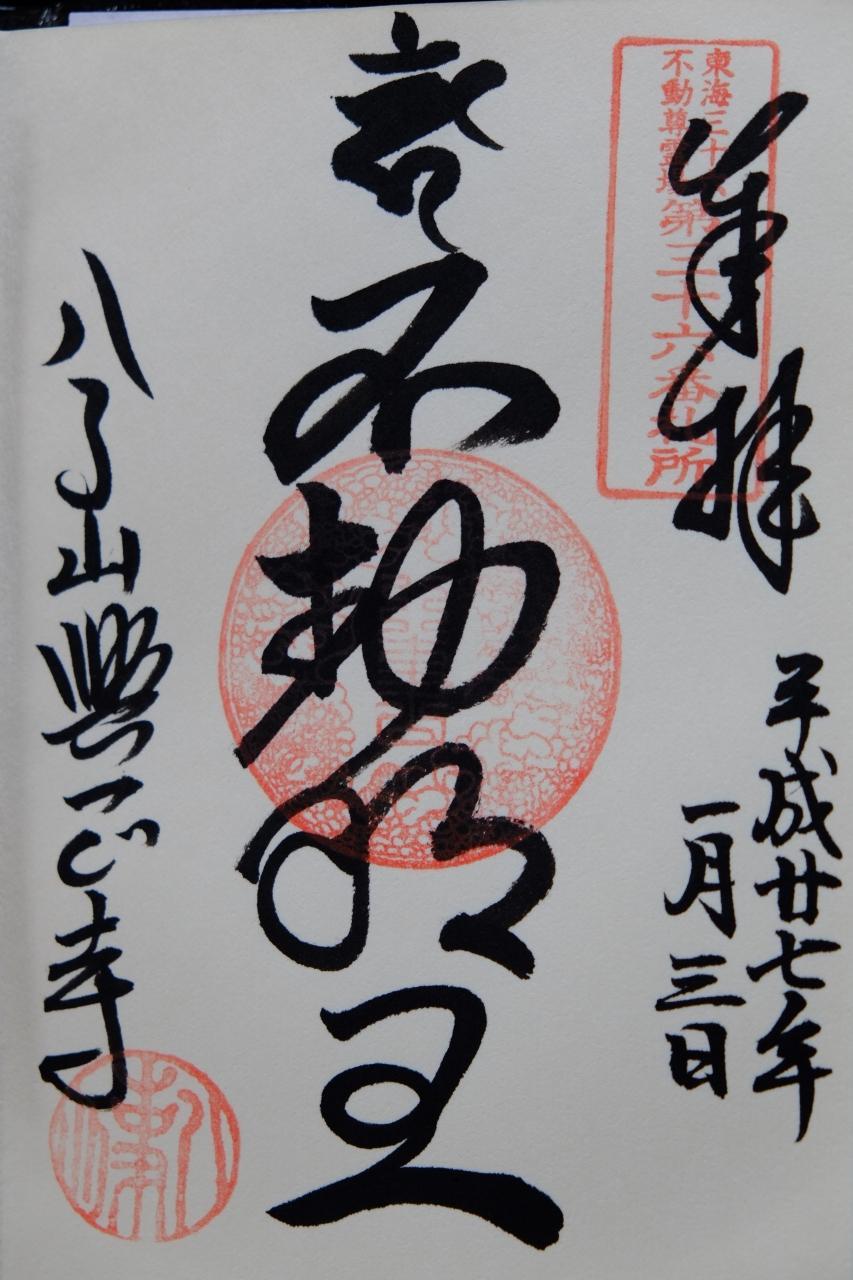 東海三十六
不動尊霊場第三十六番札所
奉拝
平成廿七年
一月三日
不動明王
八事山興正寺
八事山